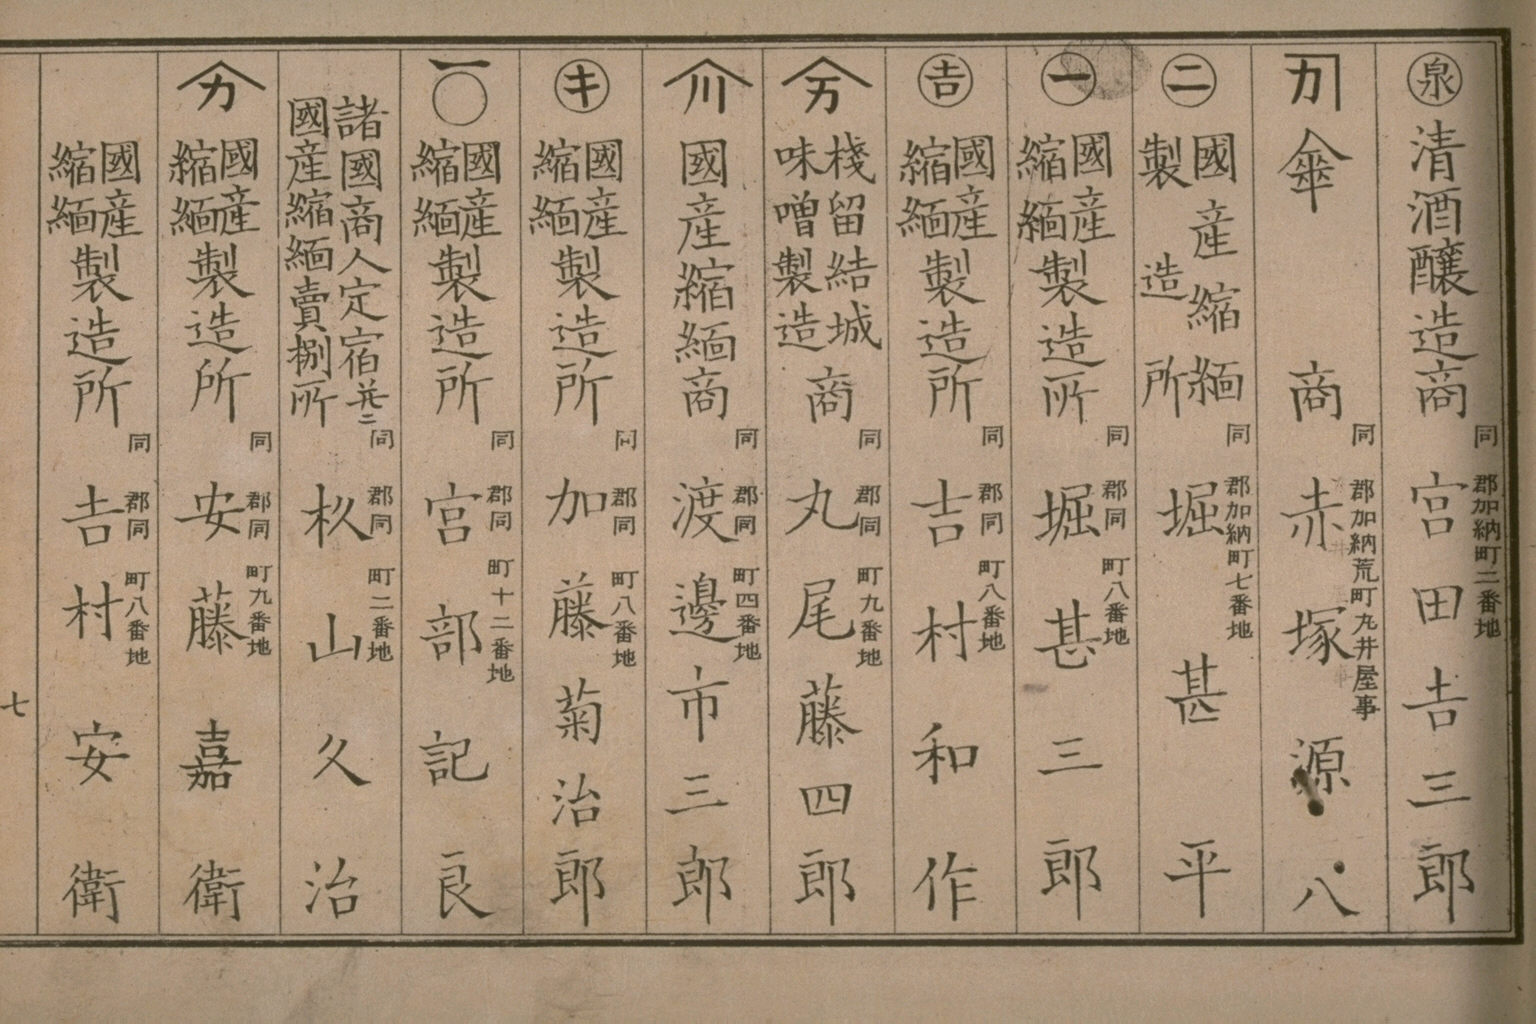 泉 清酒醸造商 同郡加納町二番地 宮田𠮷三郎
カ 傘商 同郡加納荒町丸井屋事 赤塚源八
二 國産縮緬製造所 同郡加納町七番地 堀甚平
一 國産縮緬製造所 同郡同町八番地 堀甚三郎
𠮷 國産縮緬製造所 同郡同町八番地 吉村和作
万 棧留結城味噌製造商 同郡同町九番地 丸尾藤四郎
川 國産縮緬商 同郡同町四番地 渡邊市三郎
キ 國産縮緬製造所 同郡同町八番地 加藤菊治郎
一〇 國産縮緬製造所 同郡同町十二番地 宮部記良
諸國商人定宿並ニ國産縮緬賣捌所 同郡同町二番地 杦山久治
カ 國産縮緬製造所 同郡同町九番地 安藤嘉衛
國産縮緬製造所 同郡同町八番地 𠮷村安衛
七